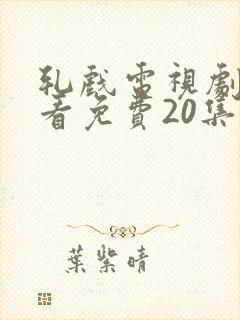 軋戲電視劇
看免費20集
葉紫晴